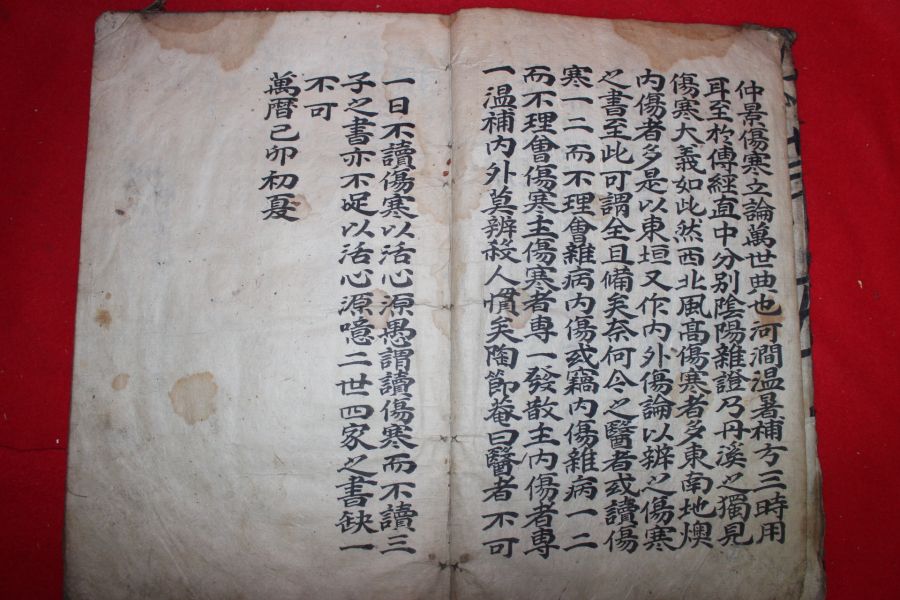 仲景傷寒立論萬世典也河澗温暑補方三時用
耳至於傳經直中分別陰陽雜證乃丹溪之獨見
傷寒大義如此然西北風高傷寒者多東南地燠
内傷者多是以東垣又作内外傷論以辨之傷寒
之書至此可謂全且備矣奈何今之醫者或讀傷
寒一二而不理會雜病内傷或竊内傷雜病一二
而不理會傷寒主傷寒者專一發散主内傷者專
一温補内外莫辨殺人慣矣陶節菴曰醫者不可
一日不讀傷寒以活心源愚謂讀傷寒而不讀三
子之書亦不足以活心源噫二世四家之書缺一
不可
萬暦己卯初夏